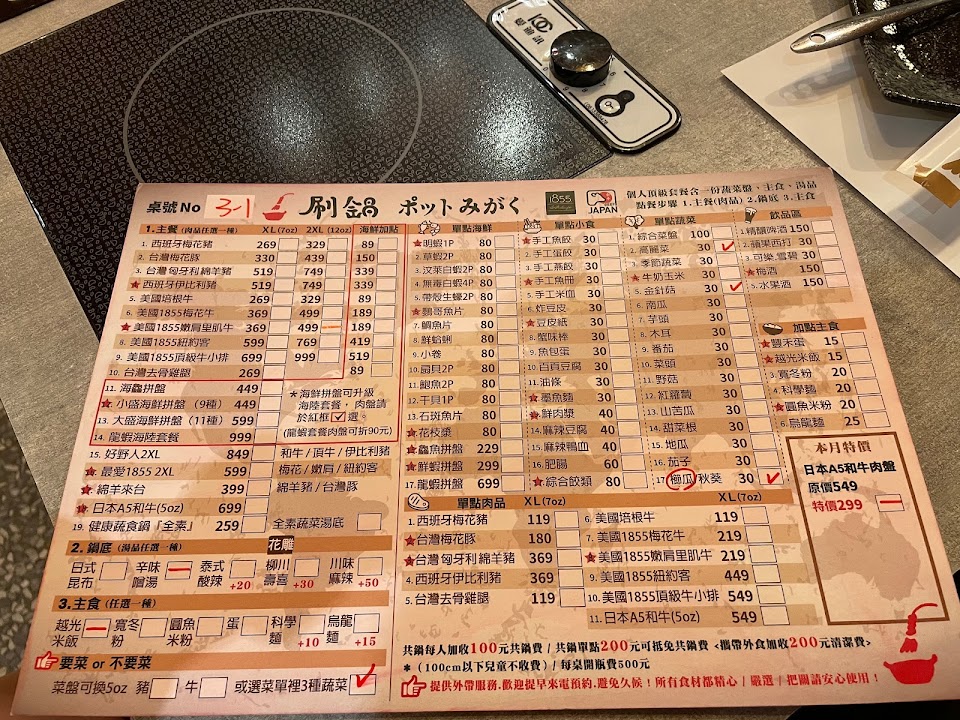 桌號No 3-1 刷鍋 ポットみがく 1855 JAPAN
個人頂級套餐含一份蔬菜盤、主食、湯品
點餐步驟 1.主餐(肉品) 2.鍋底 3.主食
1.主餐 (肉品任選一種) XL(7oz) 2XL(12oz) 海鮮加點
1. 西班牙梅花豬 269 329 89
2. 台灣梅花豚 330 439 150
3. 台灣匈牙利綿羊豬 519 749 339
★西班牙伊比利豬 519 749 339
5. 美國培根牛 269 329 89
6. 美國1855梅花牛 369 499 189
★美國1855嫩肩里肌牛 369 499 189
8. 美國1855紐約客 599 769 419
9. 美國1855頂級牛小排 699 999 519
10. 台灣去骨雞腿 269 89
11. 海鱻拼盤 449
★小盛海鮮拼盤（9種） 449
13. 大盛海鮮拼盤（11種） 599
14. 龍蝦海陸套餐 999
＊海鮮拼盤可升級
海陸套餐，肉盤請
於紅框☑選。
(龍蝦套餐肉盤可折90元)
15. 好野人2XL 849 和牛/頂牛/伊比利豬
★最愛1855 2XL 599 梅花/嫩肩/紐約客
★綿羊來台 399 綿羊豬/台灣豚
★日本A5和牛(5oz) 699
19. 健康蔬食鍋「全素」 259 全素蔬菜湯底
2. 鍋底 (湯品任選一種) 花雕
日式昆布 辛味噌湯 泰式酸辣+20 柳川壽喜+30 川味麻辣+50
3.主食 (任選一種)
越光米飯 寬冬粉 圓魚米粉 蛋 科學麵+10 烏龍麵+15
要菜 or 不要菜
菜盤可換5oz 豬 牛 或選菜單裡3種蔬菜
單點海鮮
★明蝦1P 80
2. 草蝦2P 80
3. 汶萊白蝦2P 80
4. 無毒白蝦4P 80
5. 帶殼生蠔2P 80
★鸚哥魚片 80
7. 鯛魚片 80
8. 鮮蛤蜊 80
9. 小卷 80
10. 扇貝2P 80
11. 鮑魚2P 80
12. 干貝1P 80
13. 石斑魚片 80
★花枝漿 80
★鱻魚拼盤 229
★鮮蝦拼盤 299
17. 龍蝦拼盤 699
單點小食
★手工魚餃 30
2. 手工蛋餃 30
3. 手工燕餃 30
★手工魚冊 30
5. 手工米血 30
6. 炸豆皮 30
★豆皮紙 30
8. 蟹味棒 30
9. 魚包蛋 30
10. 百頁豆腐 30
11. 油條 30
★墨魚漿 30
★鮮肉漿 40
14. 麻辣豆腐 40
15. 麻辣鴨血 40
16. 肥腸 60
★綜合餃類 80
單點蔬菜
1. 綜合菜盤 100
2. 高麗菜 30
3. 季節蔬菜 30
★牛奶玉米 30
5. 金針菇 30
6. 南瓜 30
7. 芋頭 30
8. 木耳 30
9. 番茄 30
10. 菜頭 30
11. 野菇 30
12. 紅蘿蔔 30
13. 山苦瓜 30
14. 甜菜根 30
15. 地瓜 30
16. 茄子 30
17. 櫛瓜/秋葵 30
飲品區
1. 精釀啤酒 150
2. 蘋果西打 30
3. 可樂.雪碧 30
★梅酒 150
5. 水果酒 150
加點主食
★豐禾蛋 15
★越光米飯 15
3. 寬冬粉 20
4. 科學麵 20
★圓魚米粉 20
6. 烏龍麵 25
本月特價
日本A5和牛肉盤
原價549
特價299
單點肉品 XL(7oz) XL(7oz)
1. 西班牙梅花豬 119
★台灣梅花豚 180
★台灣匈牙利綿羊豬 369
4. 西班牙伊比利豬 369
5. 台灣去骨雞腿 119
6. 美國培根牛 119
★美國1855梅花牛 219
★美國1855嫩肩里肌牛 219
9. 美國1855紐約客 449
10. 美國1855頂級牛小排 549
11. 日本A5和牛(5oz) 549
共鍋每人加收100元共鍋費 / 共鍋單點200元可抵免共鍋費 <攜帶外食加收200元清潔費>
＊（100cm以下兒童不收費）/ 每桌開瓶費500元
提供外帶服務.歡迎提早來電預約.避免久候！所有食材都精心 / 嚴選 / 把關請安心使用！